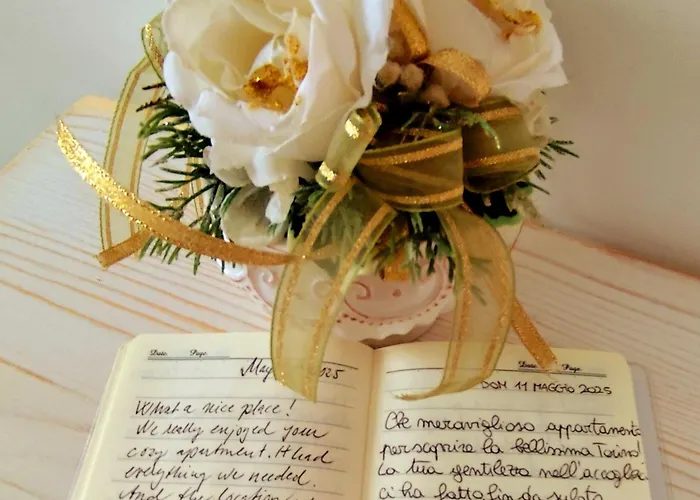 Date: Page:
May 2025
What a nice place!
We really enjoyed your
cozy apartment. It had
everything we needed.
And the location
Date: Page:
DOM 11 MAGGIO 2025
Che meraviglioso appartamento
per scoprire la bellissima Torino!
La tua gentilezza nell'accoglie
ci ha fatto fin da subito